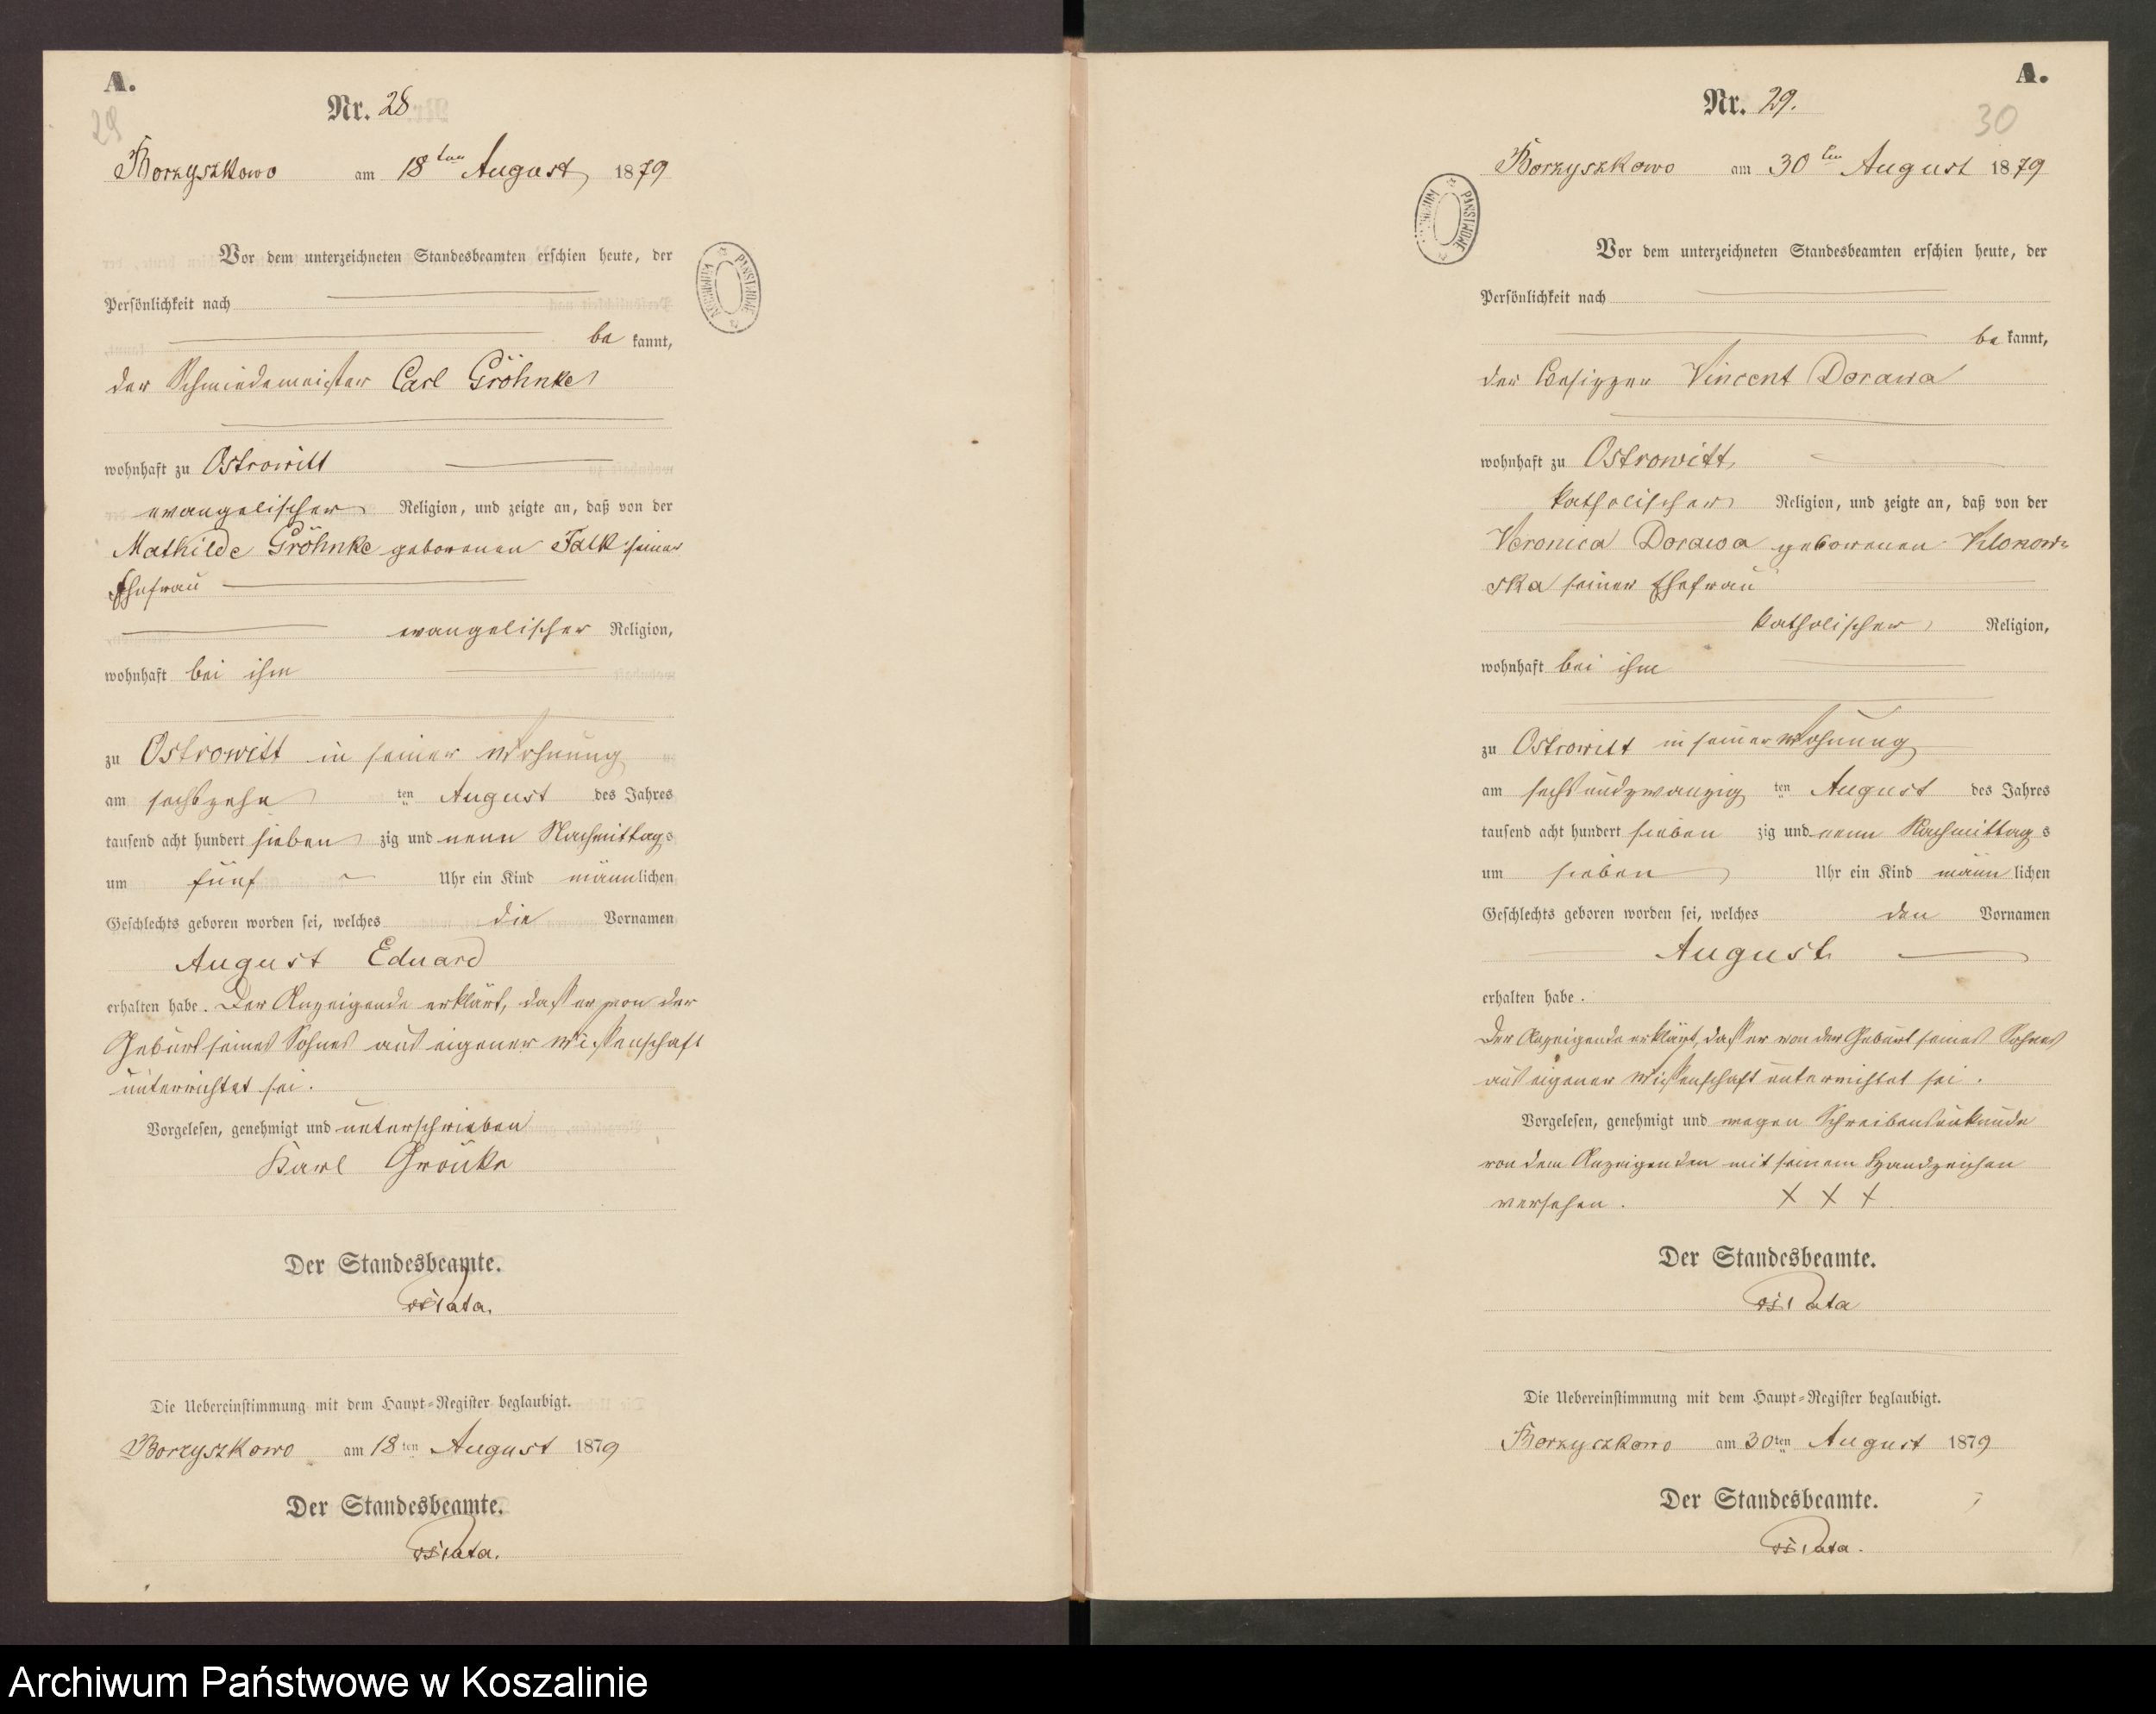 A.
29
Nr. 28
Borzyszkowo am 18ten August 1879
Vor dem unterzeichneten Standesbeamten erschien heute, der
Persönlichkeit nach
be kannt,
der Schmiedemeister Carl Gröhnke
wohnhaft zu Ostrowitt
evangelischer Religion, und zeigte an, daß von der
Mathilde Gröhnke geborenen Falk seiner
Ehefrau
evangelischer Religion,
wohnhaft bei ihm
zu Ostrowitt in seiner Wohnung
am sechszehn ten August des Jahres
tausend acht hundert sieben zig und neun Nachmittags
um fünf Uhr ein Kind männlichen
Geschlechts geboren worden sei, welches die Vornamen
August Eduard
erhalten habe. Der Anzeigende erklärt, daß er von der
Geburt seines Sohnes aus eigener Wissenschaft
unterrichtet sei.
Vorgelesen, genehmigt und unterschrieben
Karl Grönke
Der Standesbeamte.
Die Uebereinstimmung mit dem Haupt-Register beglaubigt.
Borzyszkowo am 18ten August 1879
Der Standesbeamte.
A.
Nr. 29.
30
Borzyszkowo am 30ten August 1879
Vor dem unterzeichneten Standesbeamten erschien heute, der
Persönlichkeit nach
be kannt,
der Besitzer Vincent Dorawa
wohnhaft zu Ostrowitt,
katholischer Religion, und zeigte an, daß von der
Veronica Dorawa geborenen Klonow-
ska seiner Ehefrau
katholischer Religion,
wohnhaft bei ihm
zu Ostrowitt in seiner Wohnung
am sechsundzwanzig ten August des Jahres
tausend acht hundert sieben zig und neun Nachmittag s
um sieben Uhr ein Kind männ lichen
Geschlechts geboren worden sei, welches den Vornamen
August
erhalten habe.
Der Anzeigende erklärt, daß er von der Geburt seines Sohnes
aus eigener Wissenschaft unterrichtet sei.
Vorgelesen, genehmigt und wegen Schreibensunkunde
von dem Anzeigenden mit seinem Handzeichen
versehen. X X X
Der Standesbeamte.
Die Uebereinstimmung mit dem Haupt-Register beglaubigt.
Borzyszkowo am 30ten August 1879
Der Standesbeamte.
Archiwum Państwowe w Koszalinie